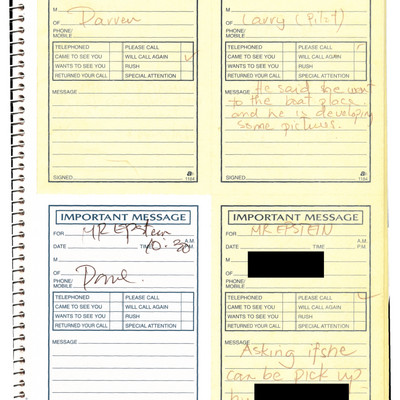 M
OF Darren
PHONE/
MOBILE
TELEPHONED PLEASE CALL
CAME TO SEE YOU WILL CALL AGAIN ✓
WANTS TO SEE YOU RUSH
RETURNED YOUR CALL SPECIAL ATTENTION
MESSAGE
SIGNED
1184
M
OF Larry (Pilot)
PHONE/
MOBILE
TELEPHONED PLEASE CALL
CAME TO SEE YOU WILL CALL AGAIN
WANTS TO SEE YOU RUSH
RETURNED YOUR CALL SPECIAL ATTENTION
MESSAGE He said he went
to the boat place
and he is developing
some pictures.
SIGNED
1184
IMPORTANT MESSAGE
FOR MR Epstein
DATE TIME 10:30 A.M.
P.M.
M
OF Dave
PHONE/
MOBILE
TELEPHONED PLEASE CALL
CAME TO SEE YOU WILL CALL AGAIN
WANTS TO SEE YOU RUSH
RETURNED YOUR CALL SPECIAL ATTENTION
MESSAGE
IMPORTANT MESSAGE
FOR MR EPSTEIN
DATE TIME A.M.
P.M.
M
OF
PHONE/
MOBILE
TELEPHONED PLEASE CALL ✓
CAME TO SEE YOU WILL CALL AGAIN
WANTS TO SEE YOU RUSH
RETURNED YOUR CALL SPECIAL ATTENTION
MESSAGE
Asking if she
can be pick up
by